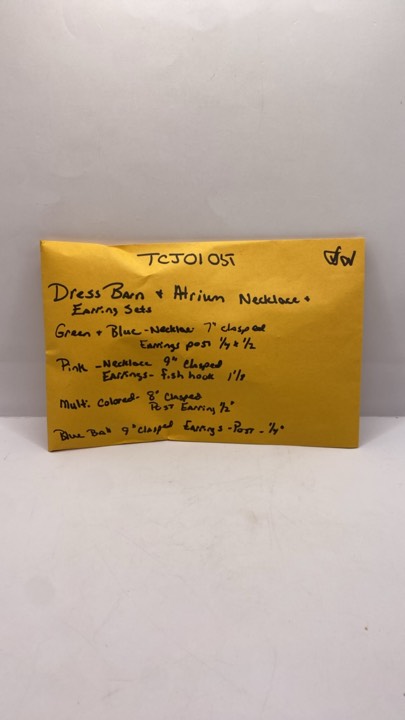 TCJ0105T
Dress Barn + Atrium Necklace +
Earring Sets
Green + Blue - Necklace 7" clasped
Earrings post 1/4 x 1/2
Pink - Necklace 9" Clasped
Earrings - fish hook 1 1/8
Multi. Colored - 8" Clasped
Post Earring 1/2"
Blue Ball 9" Clasped Earrings - Post - 1/4"